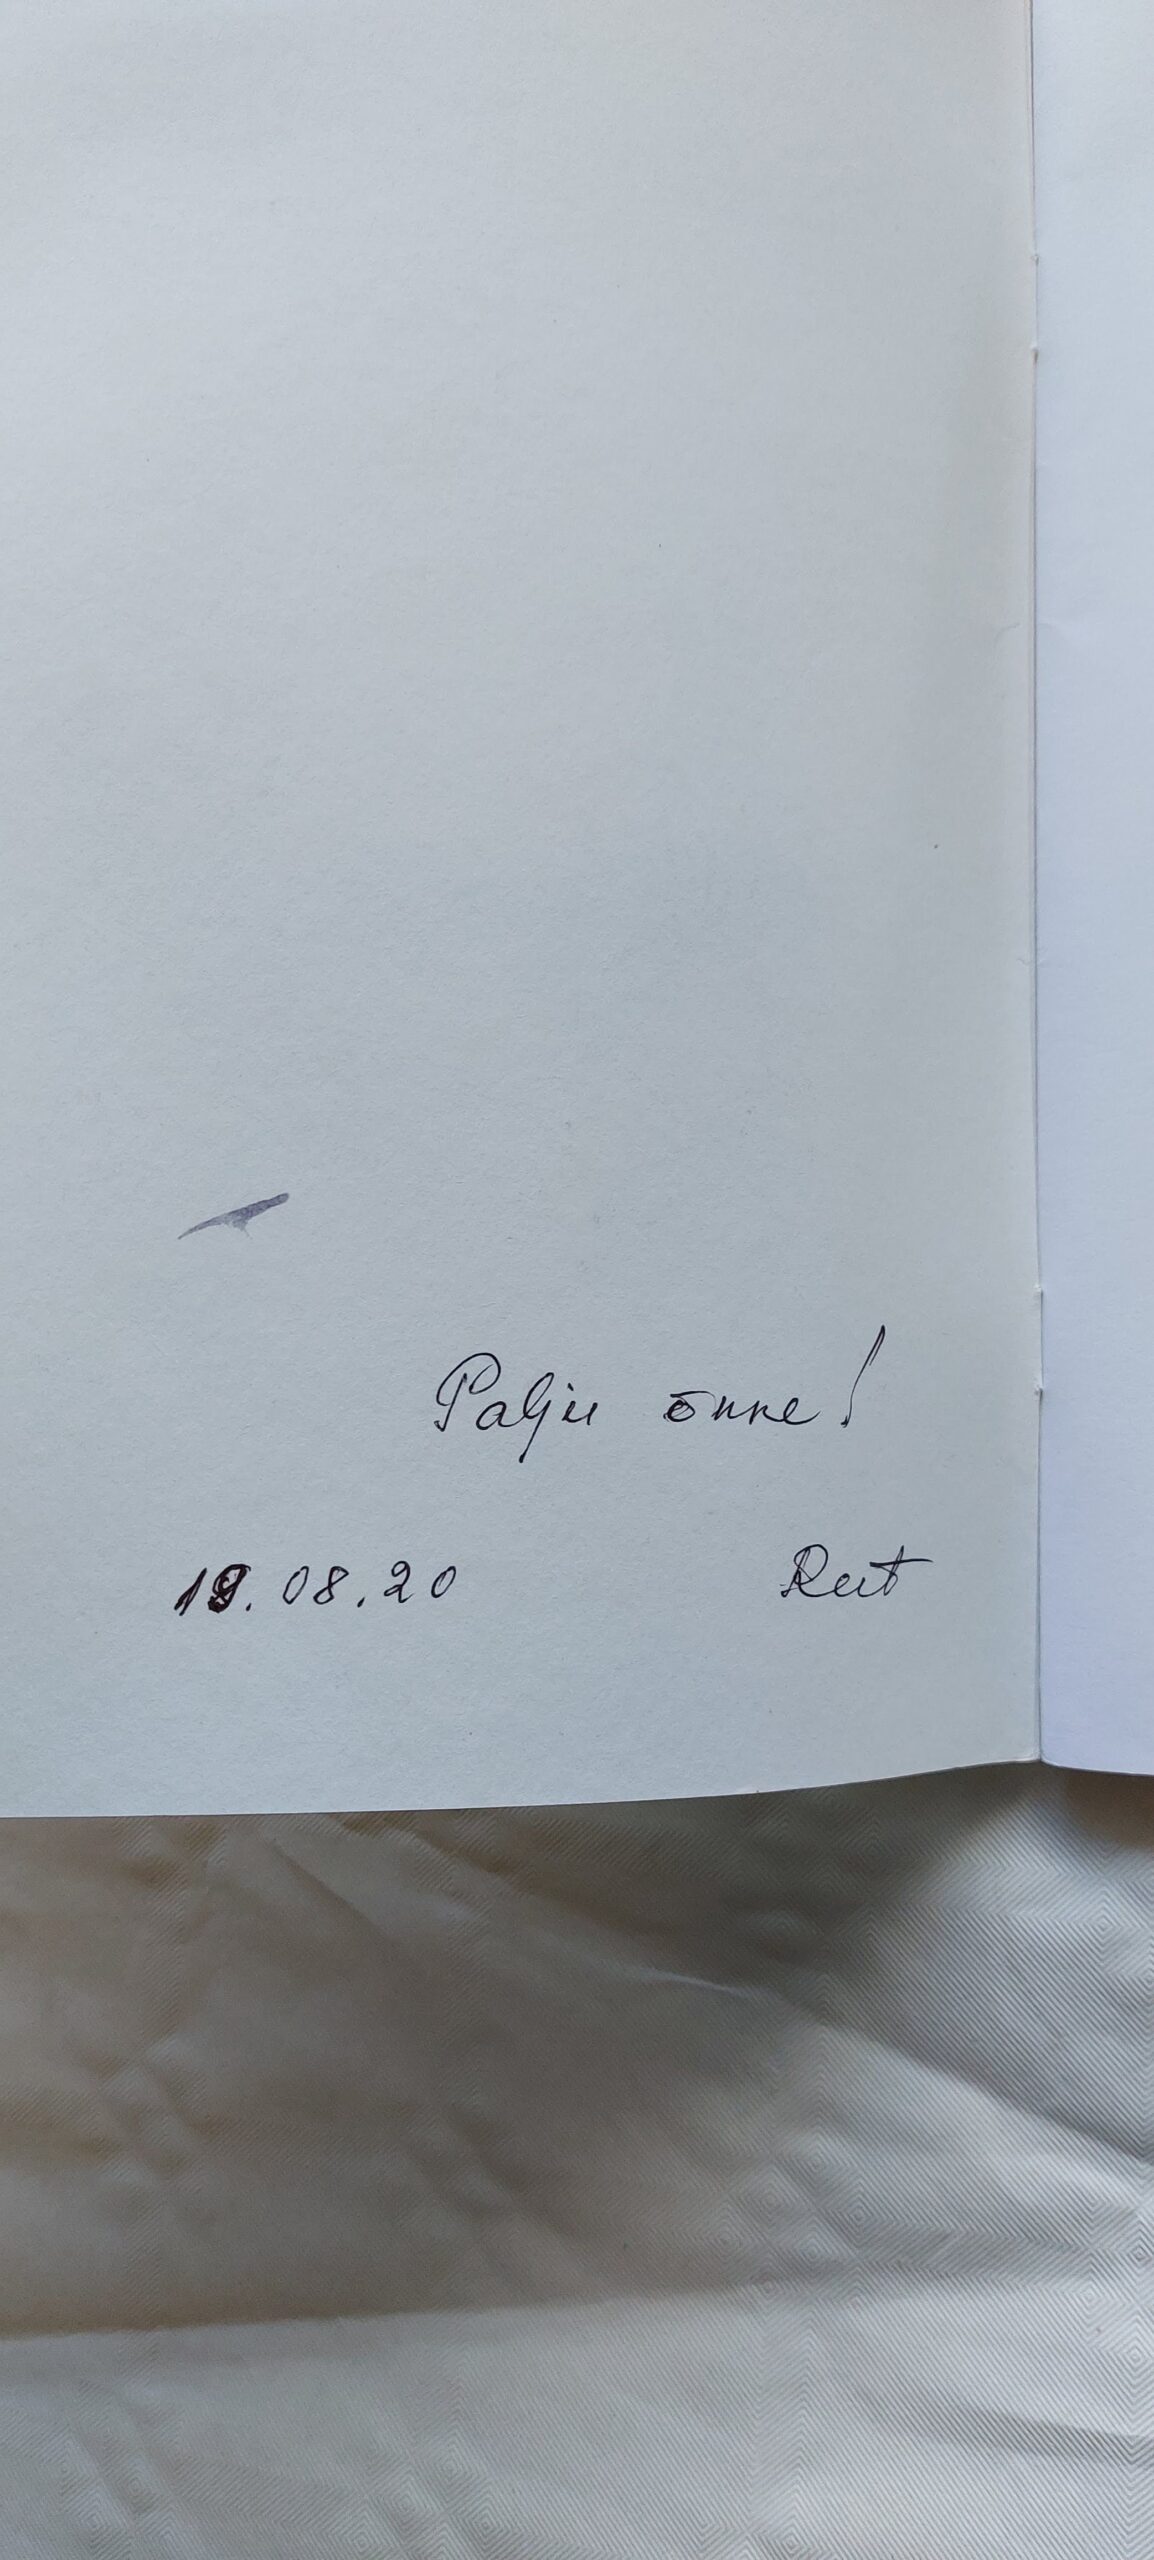 Palju õnne!
19.08.20 Rut